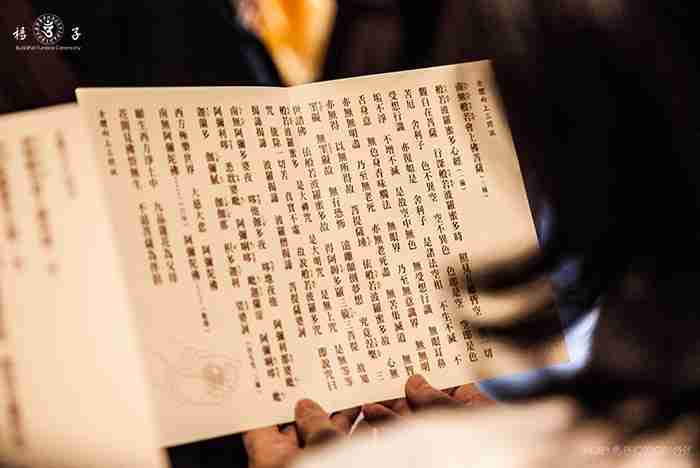 禧 子
Buddhist Funeral Ceremony
全體向上三問訊
南無般若會上佛菩薩(三稱)
般若波羅蜜多心經(一遍)
觀自在菩薩 行深般若波羅蜜多時 照見五蘊皆空 一切
苦厄 舍利子 色不異空 空不異色 色即是空 空即是色
受想行識 亦復如是 舍利子 是諸法空相 不生不滅 不
垢不淨 不增不減 是故空中無色 無受想行識 無眼耳鼻
舌身意 無色聲香味觸法 無眼界 乃至無意識界 無無明
亦無無明盡 乃至無老死 亦無老死盡 無苦集滅道 無智
亦無得 以無所得故 菩提薩埵 依般若波羅蜜多故 心無
罣礙 無罣礙故 無有恐怖 遠離顛倒夢想 究竟涅槃 三
世諸佛 依般若波羅蜜多故 得阿耨多羅三藐三菩提 故知
般若波羅蜜多 是大神咒 是大明咒 是無上咒 是無等等
咒 能除一切苦 真實不虛 故說般若波羅蜜多咒 即說咒曰
揭諦揭諦 波羅揭諦 波羅僧揭諦 菩提薩婆訶
南無阿彌多婆夜 哆他伽多夜 哆地夜他 阿彌利都婆毗
阿彌利哆 悉耽婆毗 阿彌唎哆 毗迦蘭帝 阿彌唎哆 毗
迦蘭多 伽彌膩 伽伽那 枳多迦利 娑婆訶
西方極樂世界 大慈大悲 阿彌陀佛
南無阿彌陀佛 阿彌陀佛
願生西方淨土中 九品蓮花為父母
花開見佛悟無生 不退菩薩為伴侶
全體向上三問訊
PHOTOGRAPHY